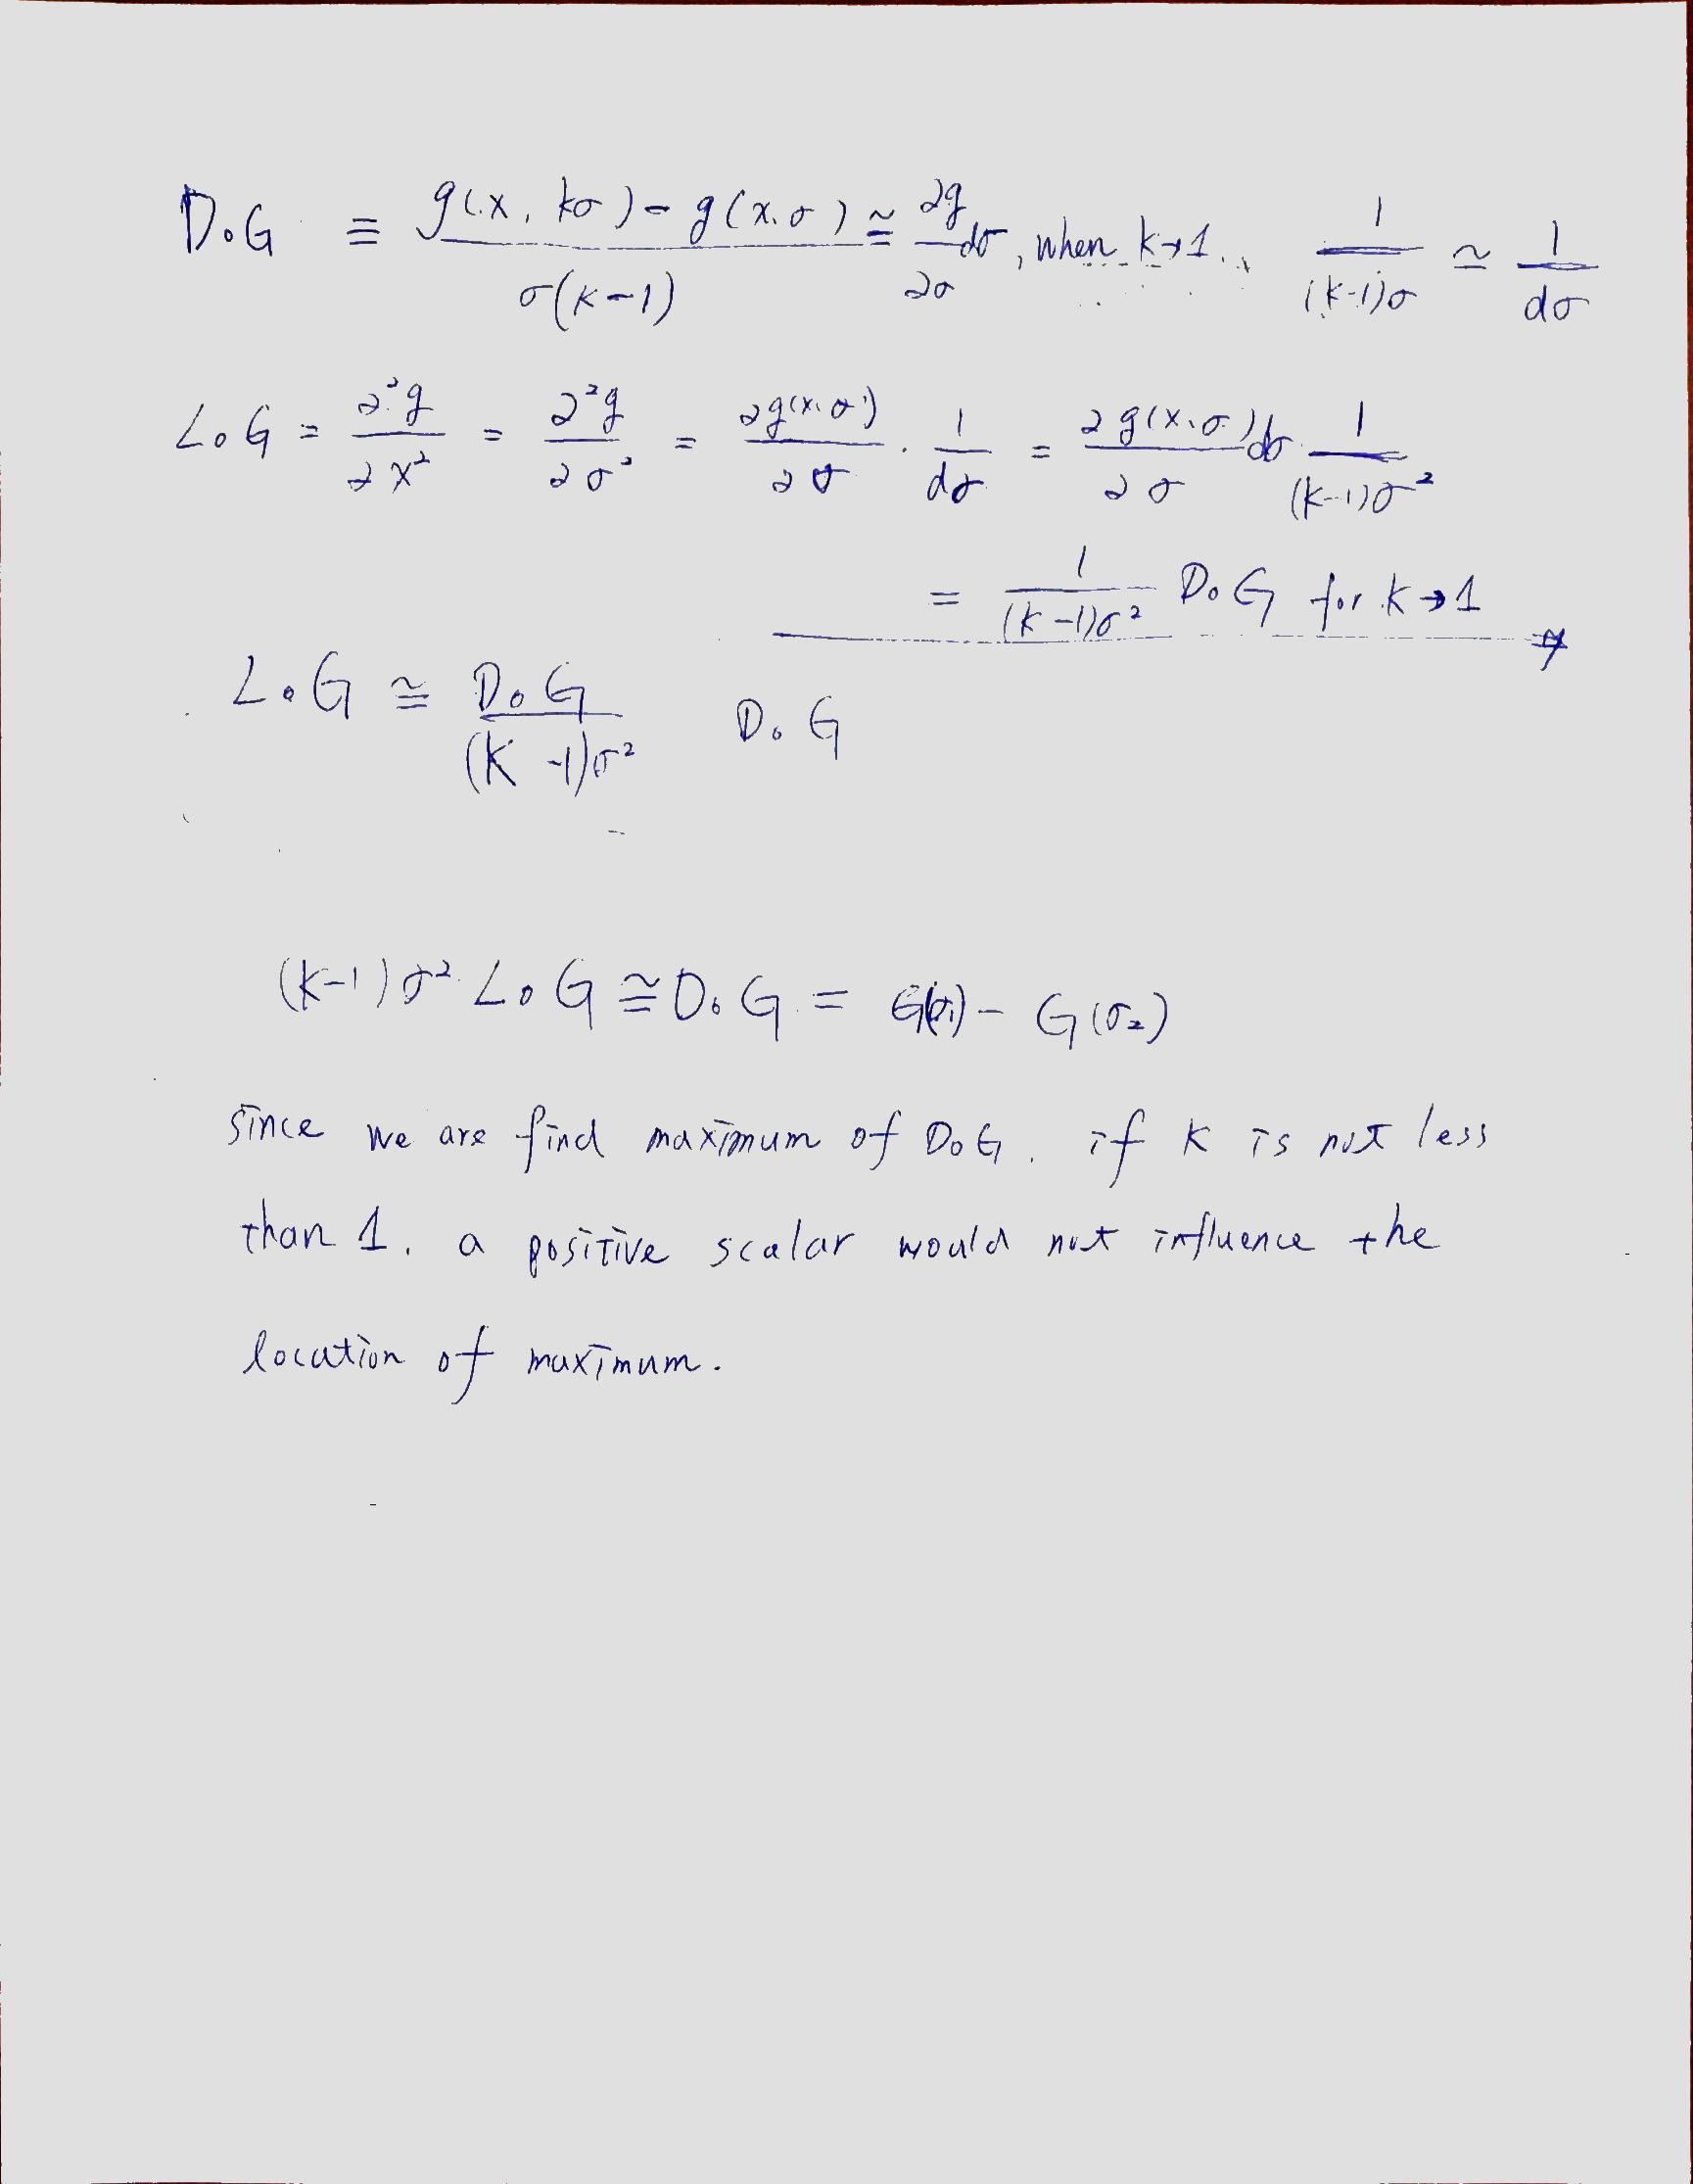 DoG ≡ g(x, kσ) - g(x, σ) / σ(k-1) ≅ ∂g/∂σ dσ, when k→1., 1/(k-1)σ ≃ 1/dσ
LoG = ∂²g/∂x² = ∂²g/∂σ² = ∂g(x,σ)/∂σ · 1/dσ = ∂g(x,σ)/∂σ dσ 1/(k-1)σ²
= 1/(k-1)σ² DoG for k→1
LoG ≅ DoG/(k-1)σ² DoG
(k-1)σ² LoG ≅ DoG = G(σ₁) - G(σ₂)
since we are find maximum of DoG. if k is not less
than 1. a positive scalar would not influence the
location of maximum.